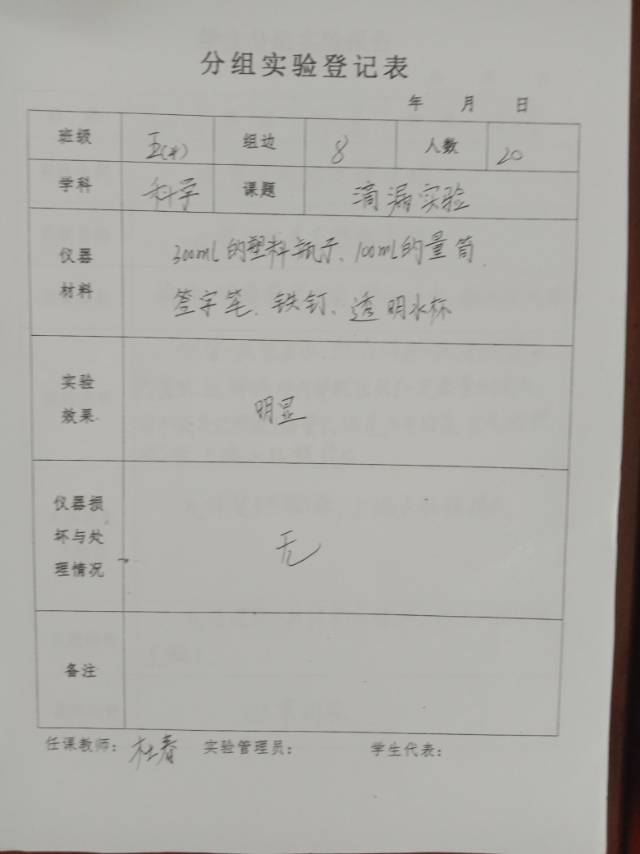 分组实验登记表
年 月 日
班级 五(4) 组边 8 人数 20
学科 科学 课题 滴漏实验
仪器材料 300ml的塑料瓶子、100ml的量筒
签字笔、铁钉、透明水杯
实验效果 明显
仪器损坏与处理情况 无
备注
任课教师: 杜春 实验管理员: 学生代表: